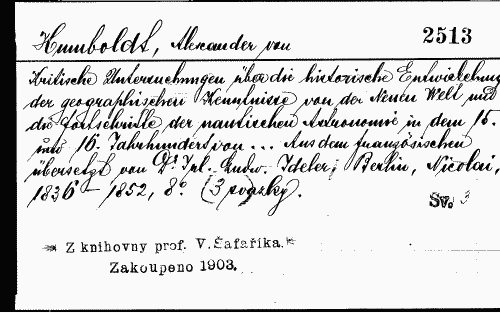 2513
Humboldt, Alexander von
Kritische Untersuchungen über die historische Entwickelung
der geographischen Kenntnisse von der Neuen Welt und
die Fortschritte der nautischen Astronomie in dem 15.
und 16. Jahrhundert von ... Aus dem französischen
übersetzt von Dr Jul. Ludw. Ideler; Berlin, Nicolai,
1836 – 1852, 8° (3 svazky).
Sv. 3
Z knihovny prof. V. Šafaříka.
Zakoupeno 1903.